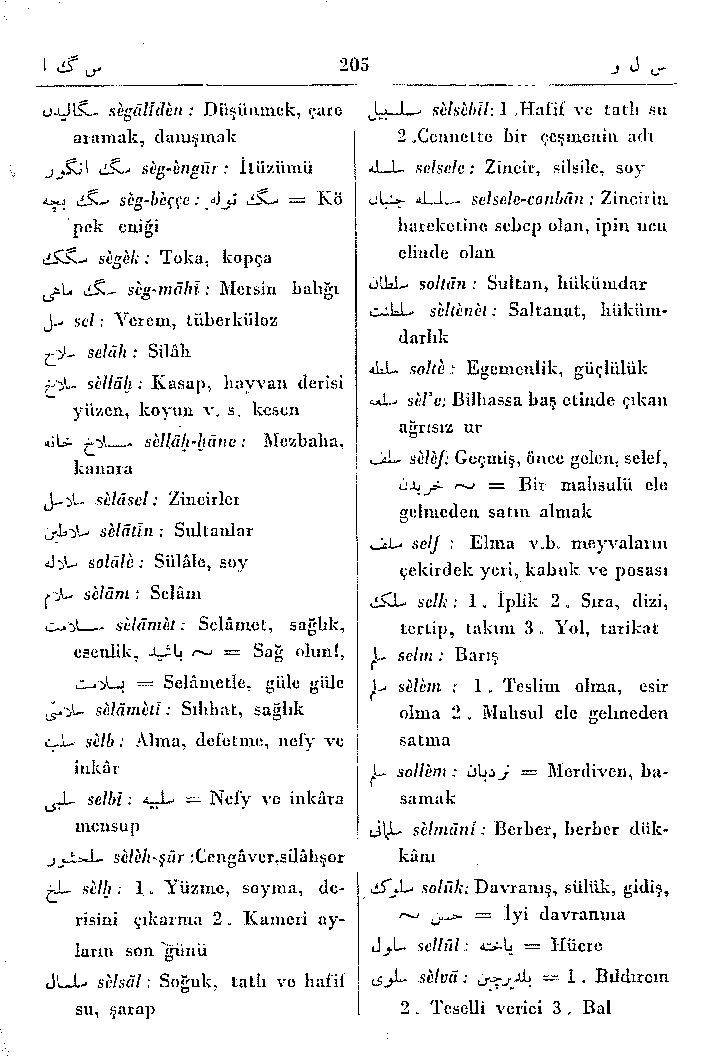 س گ ا 205 س ل و
سگالیدن sègālīdèn : Düşünmek, çare
aramak, danışmak
سگ انگور sèg-èngūr : İtüzümü
سگ بچه sèg-bèççe : سگ توله = Kö
pek eniği
سگک sègèk : Toka, kopça
سگ ماهی sèg-māhī : Mersin balığı
سل sel : Verem, tüberküloz
سلاح selāh : Silâh
سلاخ sèllāḫ : Kasap, hayvan derisi
yüzen, koyun v. s. kesen
سلاخ خانه sèllāḫ-ḫāne : Mezbaha,
kanara
سلاسل sèlāsel : Zincirler
سلاطین sèlātīn : Sultanlar
سلاله solālè : Sülâle, soy
سلام sèlām : Selâm
سلامت sèlāmèt : Selâmet, sağlık,
esenlik, باشید ~ = Sağ olun!,
بسلامت = Selâmetle, güle güle
سلامتی sèlāmètī : Sıhhat, sağlık
سلب sèlb : Alma, defetme, nefy ve
inkâr
سلبی selbī : سلبیه = Nefy ve inkâra
mensup
سلحشور sèlèh-şūr :Cengâver,silâhşor
سلخ sèlḫ : 1. Yüzme, soyma, de-
risini çıkarma 2. Kameri ay-
ların son günü
سلسال sèlsāl : Soğuk, tatlı ve hafif
su, şarap
سلسبیل sèlsèbīl: 1.Hafif ve tatlı su
2.Cennette bir çeşmenin adı
سلسله selsele : Zincir, silsile, soy
سلسله جنبان selsele-conbān : Zincirin
hareketine sebep olan, ipin ucu
elinde olan
سلطان soltān : Sultan, hükümdar
سلطنت sèltènèt : Saltanat, hüküm-
darlık
سلطه soltè : Egemenlik, güçlülük
سلعه sèl'e: Bilhassa baş etinde çıkan
ağrısız ur
سلف sèlèf: Geçmiş, önce gelen, selef,
خریدن ~ = Bir mahsulü ele
gelmeden satın almak
سلف self : Elma v.b. meyvaların
çekirdek yeri, kabuk ve posası
سلک selk : 1. İplik 2. Sıra, dizi,
tertip, takım 3. Yol, tarikat
سلم selm : Barış
سلم sèlèm : 1. Teslim olma, esir
olma 2. Mahsul ele gelmeden
satma
سلم sollèm : نردبان = Merdiven, ba-
samak
سلمانی sèlmānī : Berber, berber dük-
kânı
سلوک solūk: Davranış, sülük, gidiş,
حسن ~ = İyi davranma
سلول sellūl : یاخته = Hücre
سلوی sèlvā : بلدرچین = 1. Bıldırcın
2. Teselli verici 3. Bal